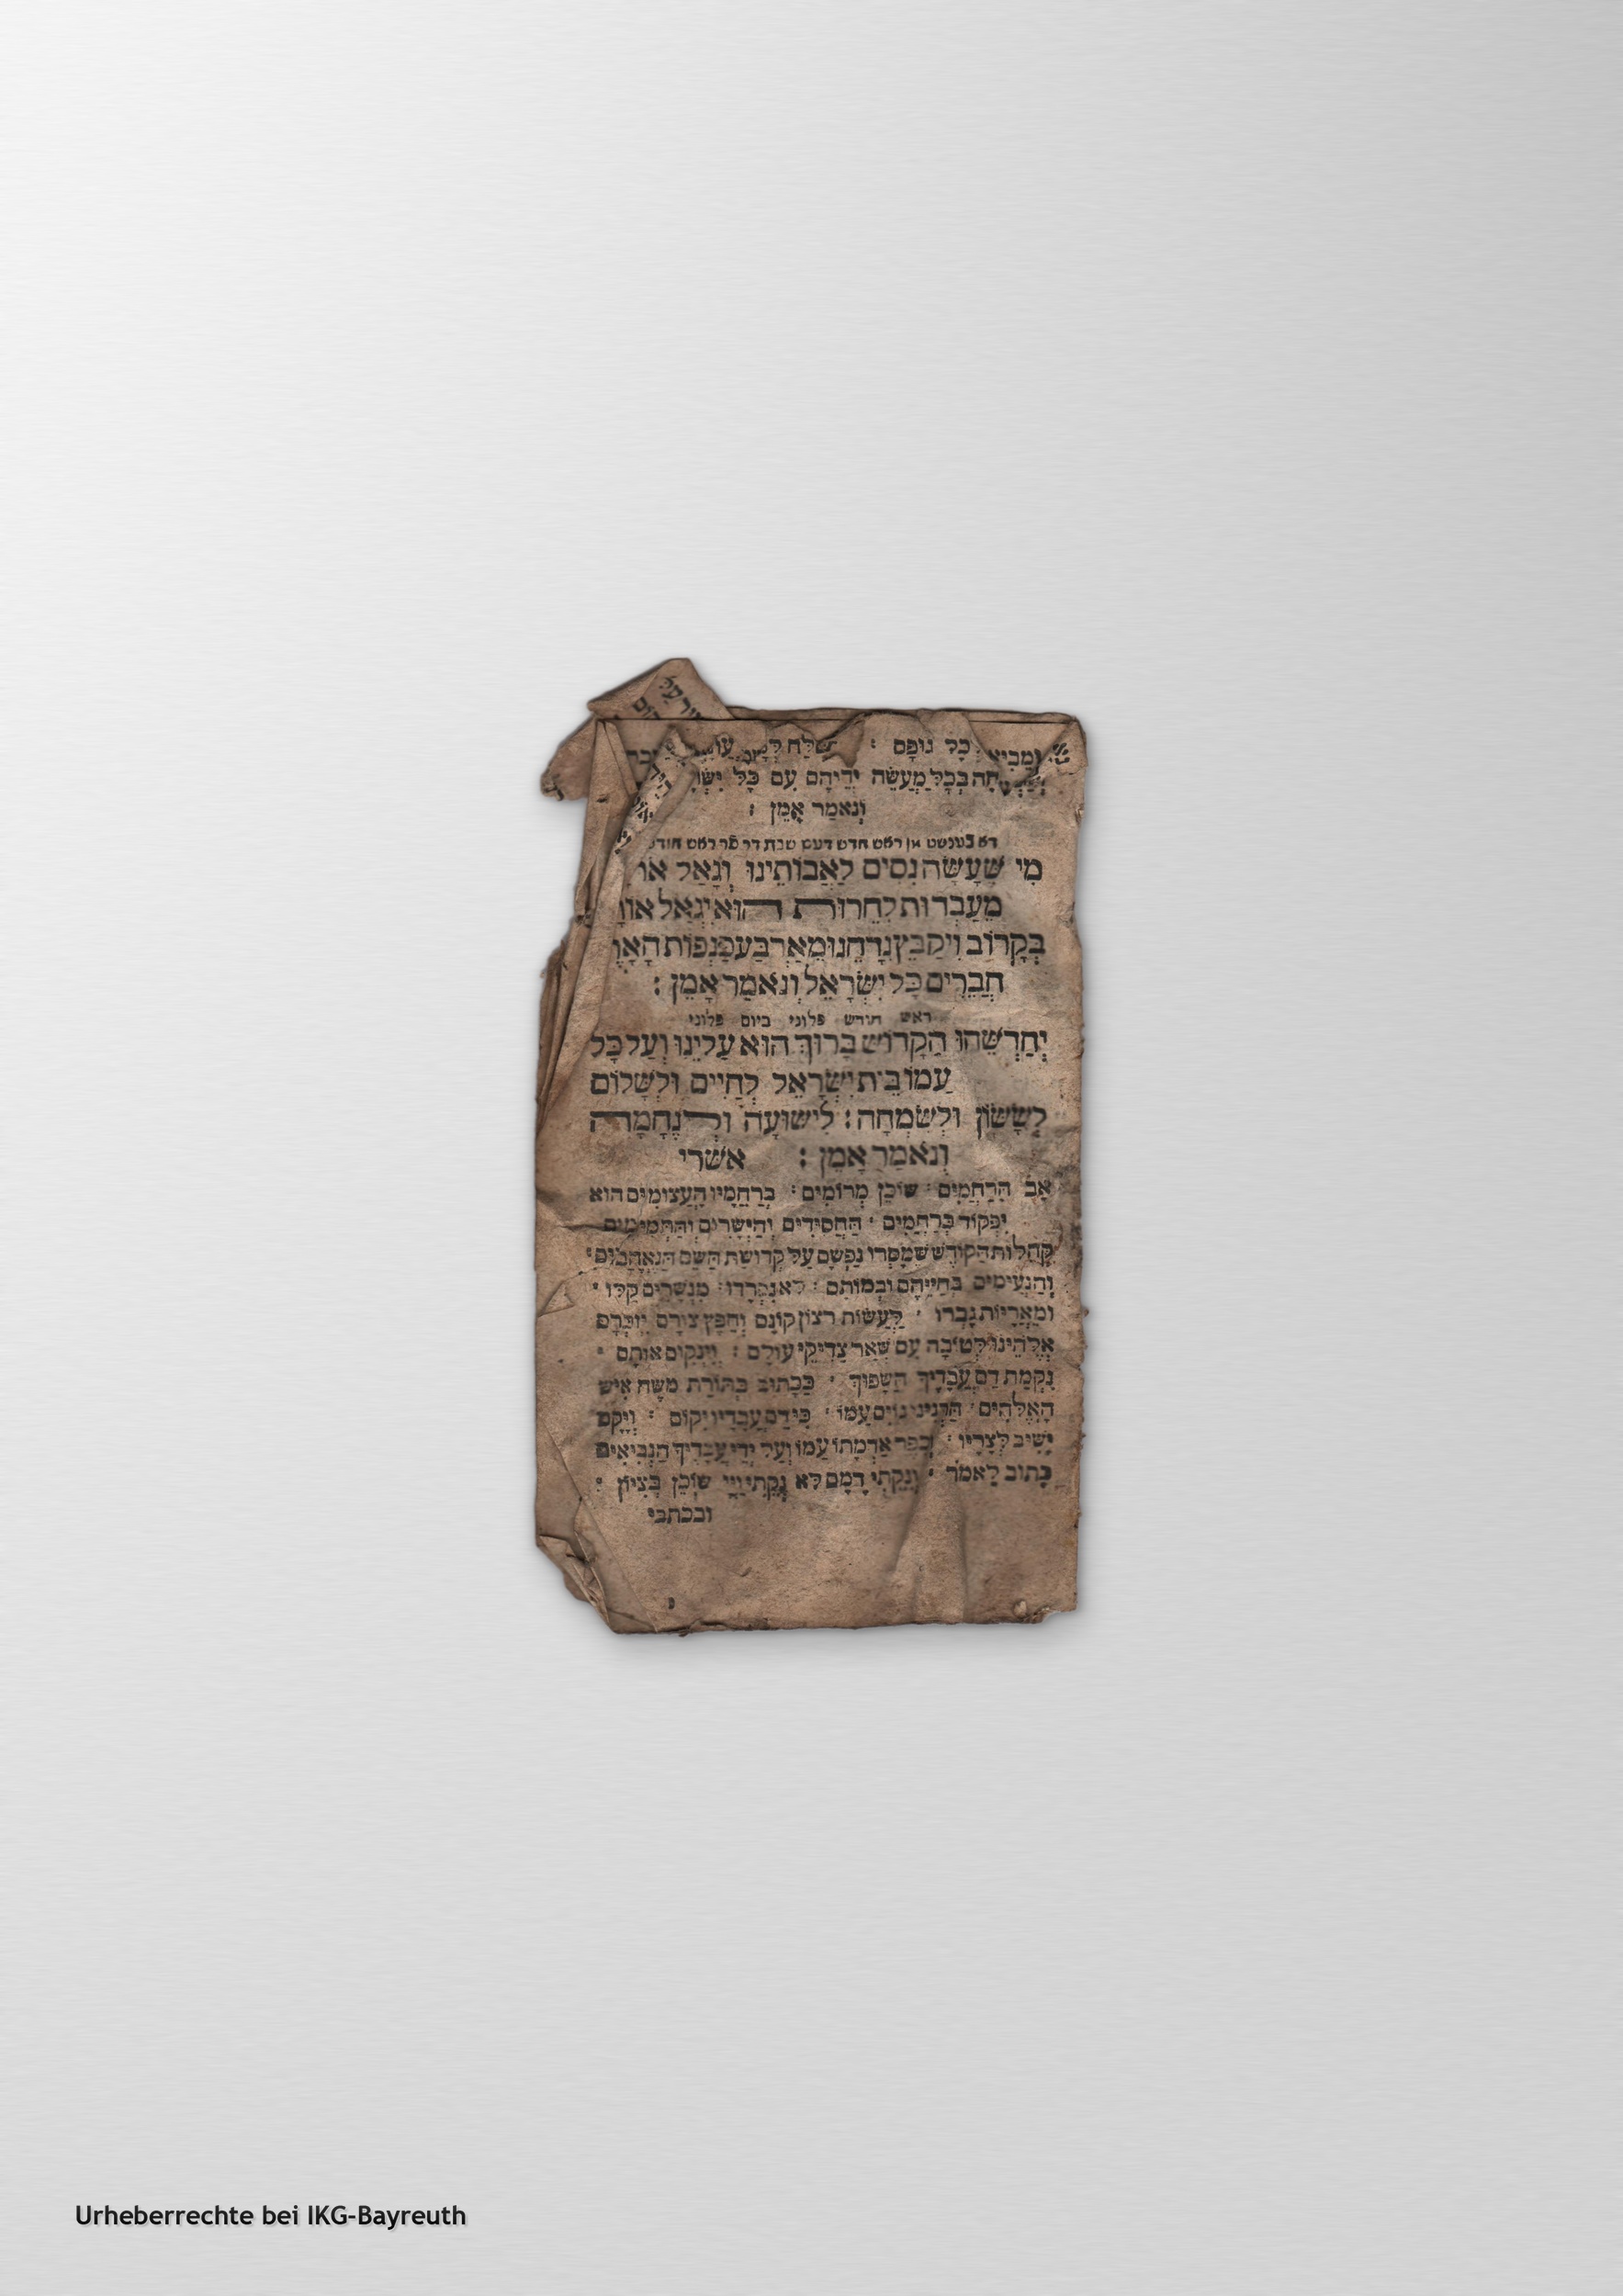 וּמֵבִיא לְכָל גוּפָם : וְיִשְׁלַח
בְּכָל מַעֲשֵׂה יְדֵיהֶם עִם כָּל
וְנֹאמַר אָמֵן :
דא בענשט מן ראש חדש דעם שבת דר פר ראש חודש
מִי שֶׁעָשָׂה נִסִים לַאֲבוֹתֵינוּ וְגָאַל
מֵעַבְדוּת לְחֵרוּת הוּא יִגְאַל
בְּקָרוֹב וִיקַבֵּץ נִדָחֵנוּ מֵאַרְבַּע כַּנְפוֹת
חֲבֵרִים כָּל יִשְׂרָאֵל וְנֹאמַר אָמֵן :
ראש חודש פלוני ביום פלוני
יְחַדְשֵׁהוּ הַקָדוֹשׁ בָּרוּךְ הוּא עָלֵינוּ וְעַל כָּל
עַמוֹ בֵּית יִשְׂרָאֵל לְחַיִים וּלְשָׁלוֹם
לְשָׂשׂוֹן וּלְשִׂמְחָה : לִישׁוּעָה וּלְנֶחָמָה
וְנֹאמַר אָמֵן : אשרי
אַב הָרַחֲמִים שׁוֹכֵן מְרוֹמִים : בְּרַחֲמָיו הָעֲצוּמִים הוּא
יִפְקוֹד בְּרַחֲמִים : הַחֲסִידִים וְהַיְשָׁרִים וְהַתְּמִימִים
קְהִלוֹת הַקוֹדֶשׁ שֶׁמָסְרוּ נַפְשָׁם עַל קְדוּשַׁת הַשֵׁם הַנֶאֱהָבִים :
וְהַנְעִימִים בְּחַיֵיהֶם וּבְמוֹתָם : לֹא נִפְרָדוּ : מִנְשָׁרִים קַלוּ :
וּמֵאֲרָיוֹת גָבֵרוּ : לַעֲשׂוֹת רְצוֹן קוֹנָם וְחֵפֶץ צוּרָם יִזְכְּרֵם
אֱלֹהֵינוּ לְטוֹבָה עִם שְׁאָר צַדִיקֵי עוֹלָם : וְיִנְקוֹם אוֹתָם :
נִקְמַת דַם עֲבָדֶיךָ הַשָׁפוּךְ : כַּכָּתוּב בְּתוֹרַת מֹשֶׁה אִישׁ
הָאֱלֹהִים : הַרְנִינוּ גוֹיִם עַמוֹ : כִּי דַם עֲבָדָיו יִקוֹם : וְנָקָם
יָשִׁיב לְצָרָיו : וְכִפֶּר אַדְמָתוֹ עַמוֹ וְעַל יְדֵי עֲבָדֶיךָ הַנְבִיאִים
כָּתוּב לֵאמֹר : וְנִקֵיתִי דָמָם לֹא נִקֵיתִי וַיְיָ שׁוֹכֵן בְּצִיוֹן :
ובכתבי
Urheberrechte bei IKG-Bayreuth